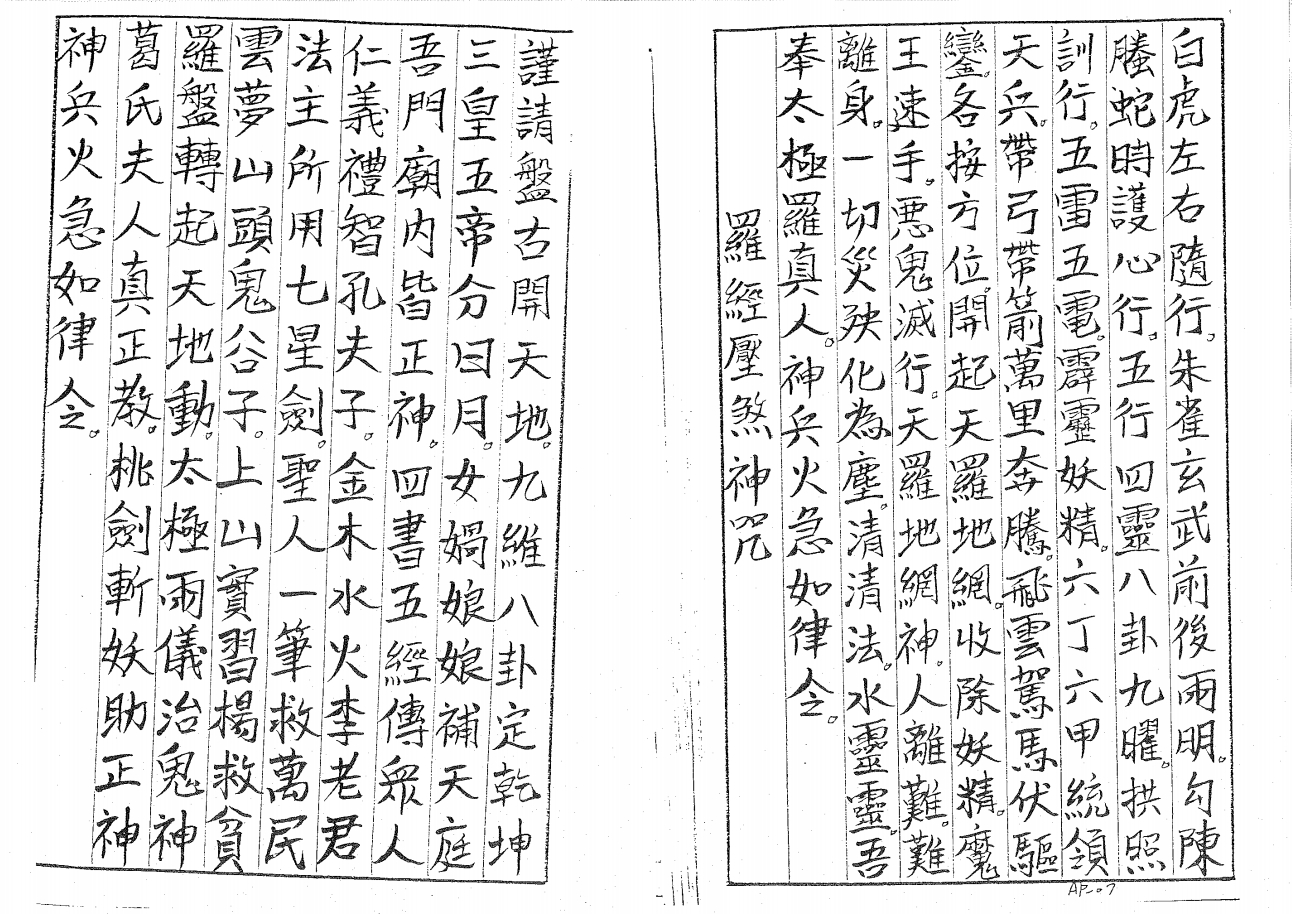 白虎左右隨行。朱雀玄武前後雨明。勾陳
螣蛇時護心行。五行四靈八卦九曜。拱照
訓行。五雷五電。霹靂妖精。六丁六甲統領
天兵。帶弓帶箭萬里奔騰。飛雲駕馬伏驅
鑾。各按方位。開起天羅地網。收除妖精。魔
王速手。惡鬼滅行。天羅地網神。人離難。難
離身。一切災殃化為塵。清清法。水靈靈。吾
奉太極羅真人。神兵火急如律令。
羅經壓煞神咒
謹請盤古開天地。九維八卦定乾坤
三皇五帝分日月。女媧娘娘補天庭
吾門廟內皆正神。四書五經傳眾人
仁義禮智孔夫子。金木水火李老君
法主所用七星劍。聖人一筆救萬民
雲夢山頭鬼谷子。上山實習楊救貧
羅盤轉起天地動。太極雨儀治鬼神
葛氏夫人真正教。桃劍斬妖助正神
神兵火急如律令。
AP-07